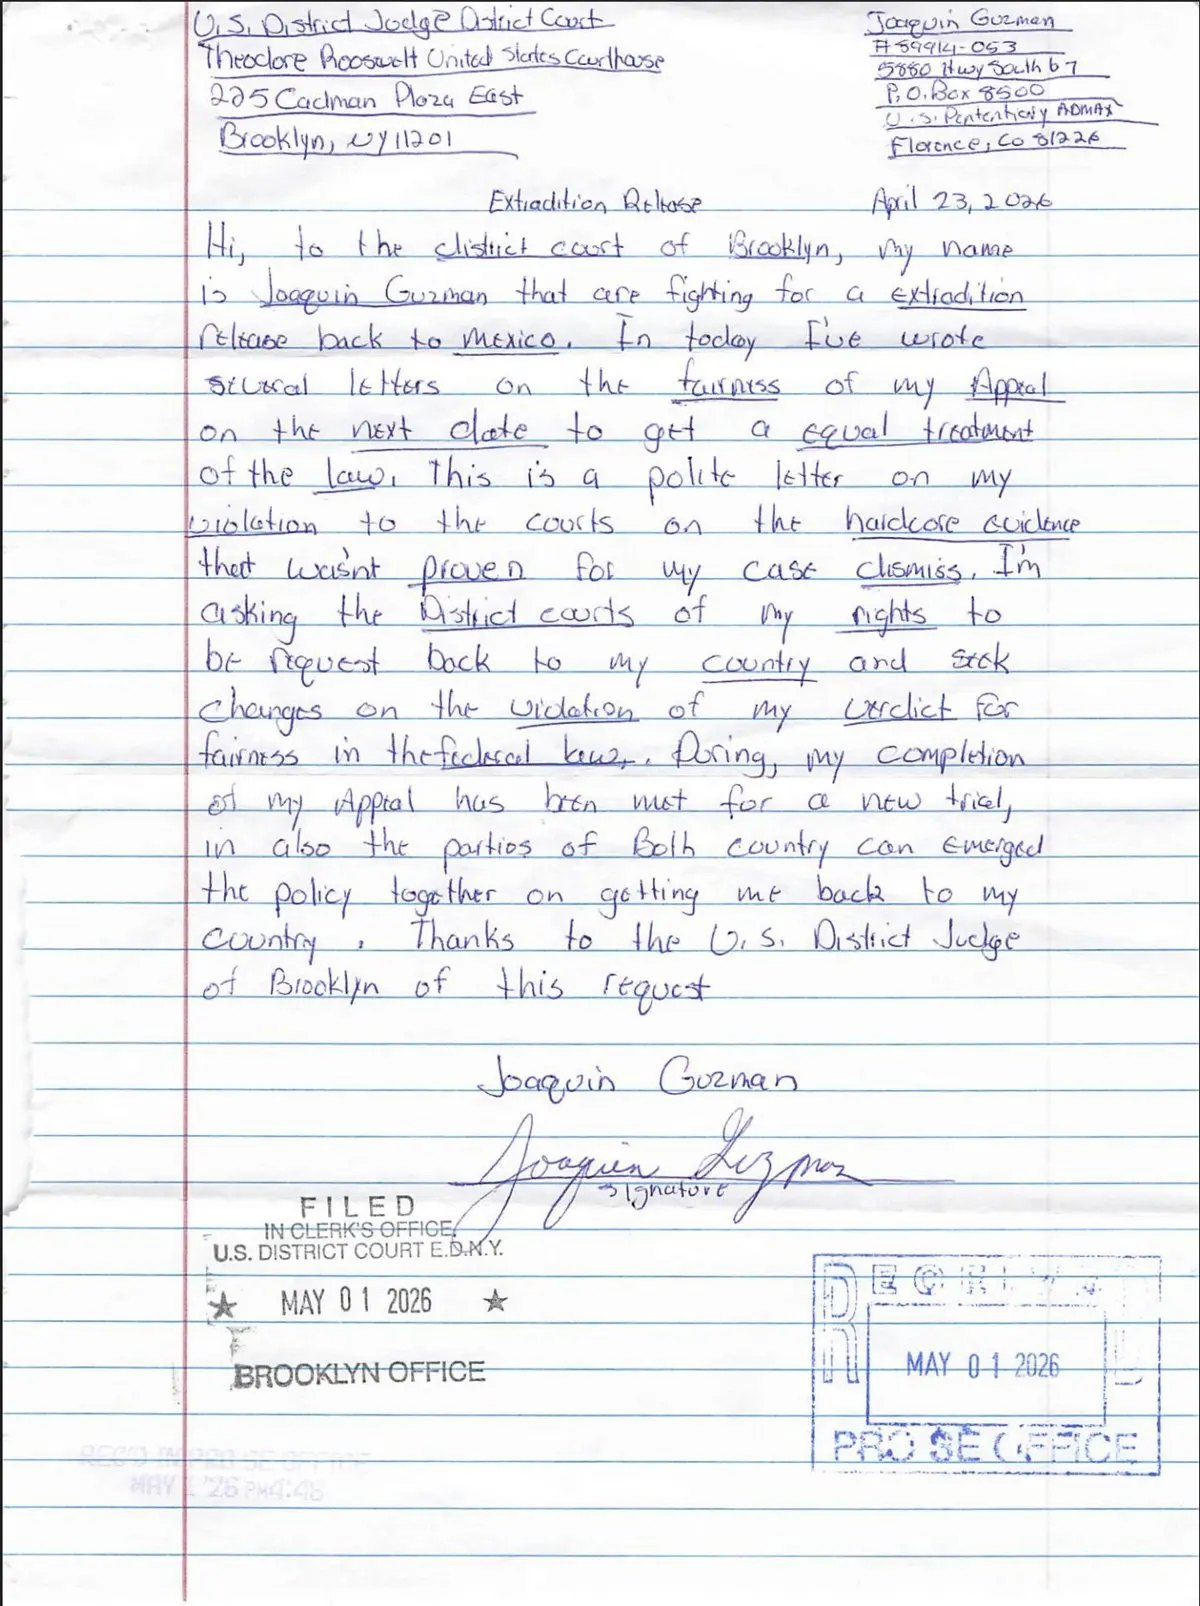 U.S. District Judge District Court
Theodore Roosevelt United States Courthouse
225 Cadman Plaza East
Brooklyn, NY 11201
Joaquin Guzman
# 89914-053
5880 Hwy South 67
P.O. Box 8500
U.S. Pententiary ADMAX
Florence, Co 81226
Extradition Release
April 23, 2026
Hi, to the district court of Brooklyn, my name
is Joaquin Guzman that are fighting for a extradition
release back to Mexico. In today I've wrote
several letters on the fairness of my Appeal
on the next date to get a equal treatment
of the law. This is a polite letter on my
violation to the courts on the hardcore evidence
that wasn't proven for my case dismiss. I'm
asking the District courts of my rights to
be request back to my country and seek
changes on the violation of my verdict for
fairness in the federal law. During, my completion
of my Appeal has been met for a new trial,
in also the parties of Both country can emerged
the policy together on getting me back to my
country. Thanks to the U.S. District Judge
of Brooklyn of this request
Joaquin Guzman
Joaquin Guzman
signature
FILED
IN CLERK'S OFFICE
U.S. DISTRICT COURT E.D.N.Y.
★ MAY 01 2026 ★
BROOKLYN OFFICE
RECEIVED
MAY 01 2026
PRO SE OFFICE
REC'D IN PRO SE OFFICE
MAY 1 '26 PM4:48